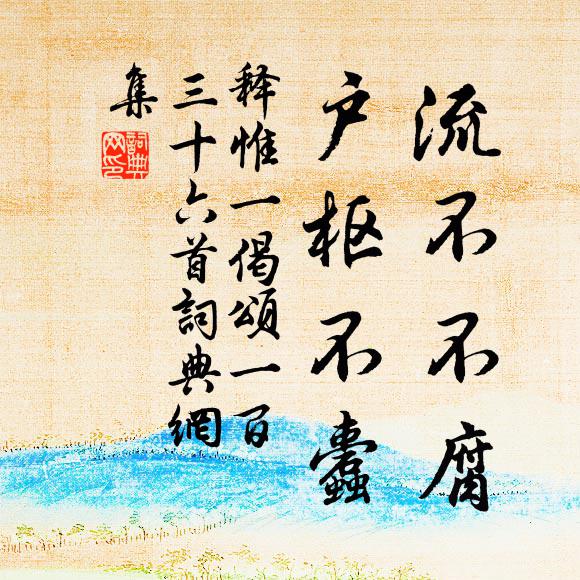 流不不腐
户枢不蠹
释惟一偈颂一百
三十六首詞典網
集
詞典
网印